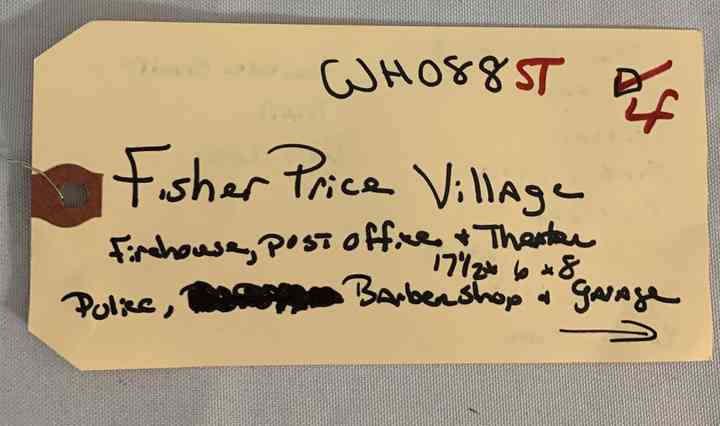 WH088ST
LF
Fisher Price Village
Firehouse, Post Office + Theater
17 1/2 x 6 x 8
Police, Barbershop + Garage